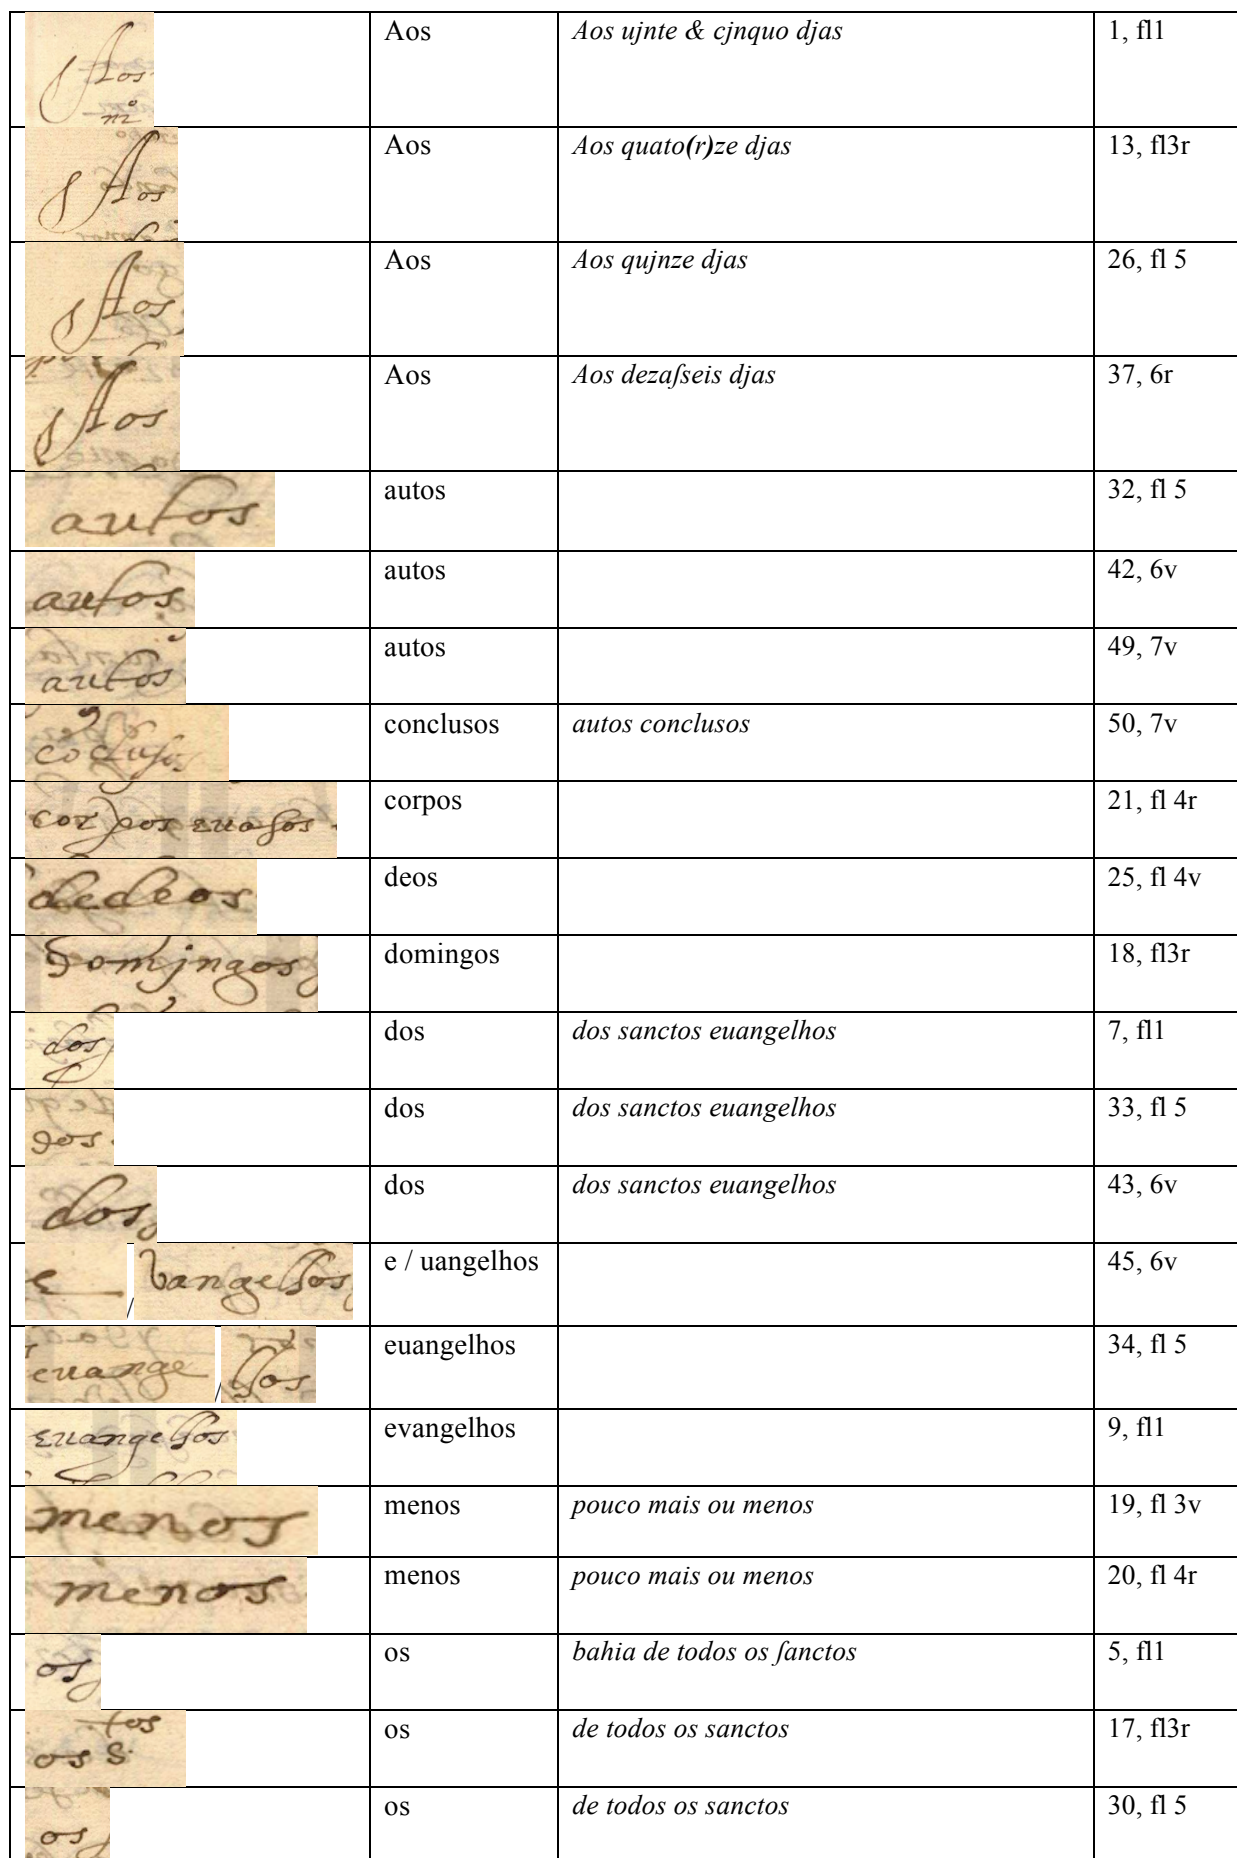 Aos Aos Aos ujnte & cjnquo djas 1, fl1
mº
Aos Aos Aos quato(r)ze djas 13, fl3r
Aos Aos Aos qujnze djas 26, fl 5
Aos Aos Aos dezaſseis djas 37, 6r
autos autos 32, fl 5
autos autos 42, 6v
autos autos 49, 7v
cõclusos conclusos autos conclusos 50, 7v
corpos euasos corpos 21, fl 4r
dedeos deos 25, fl 4v
domjngos domingos 18, fl3r
dos dos dos sanctos euangelhos 7, fl1
dos dos dos sanctos euangelhos 33, fl 5
dos dos dos sanctos euangelhos 43, 6v
e / vangelhos e / uangelhos 45, 6v
euange / lhos euangelhos 34, fl 5
euangelhos evangelhos 9, fl1
menos menos pouco mais ou menos 19, fl 3v
menos menos pouco mais ou menos 20, fl 4r
os os bahia de todos os ſanctos 5, fl1
os S.tos os de todos os sanctos 17, fl3r
os os de todos os sanctos 30, fl 5